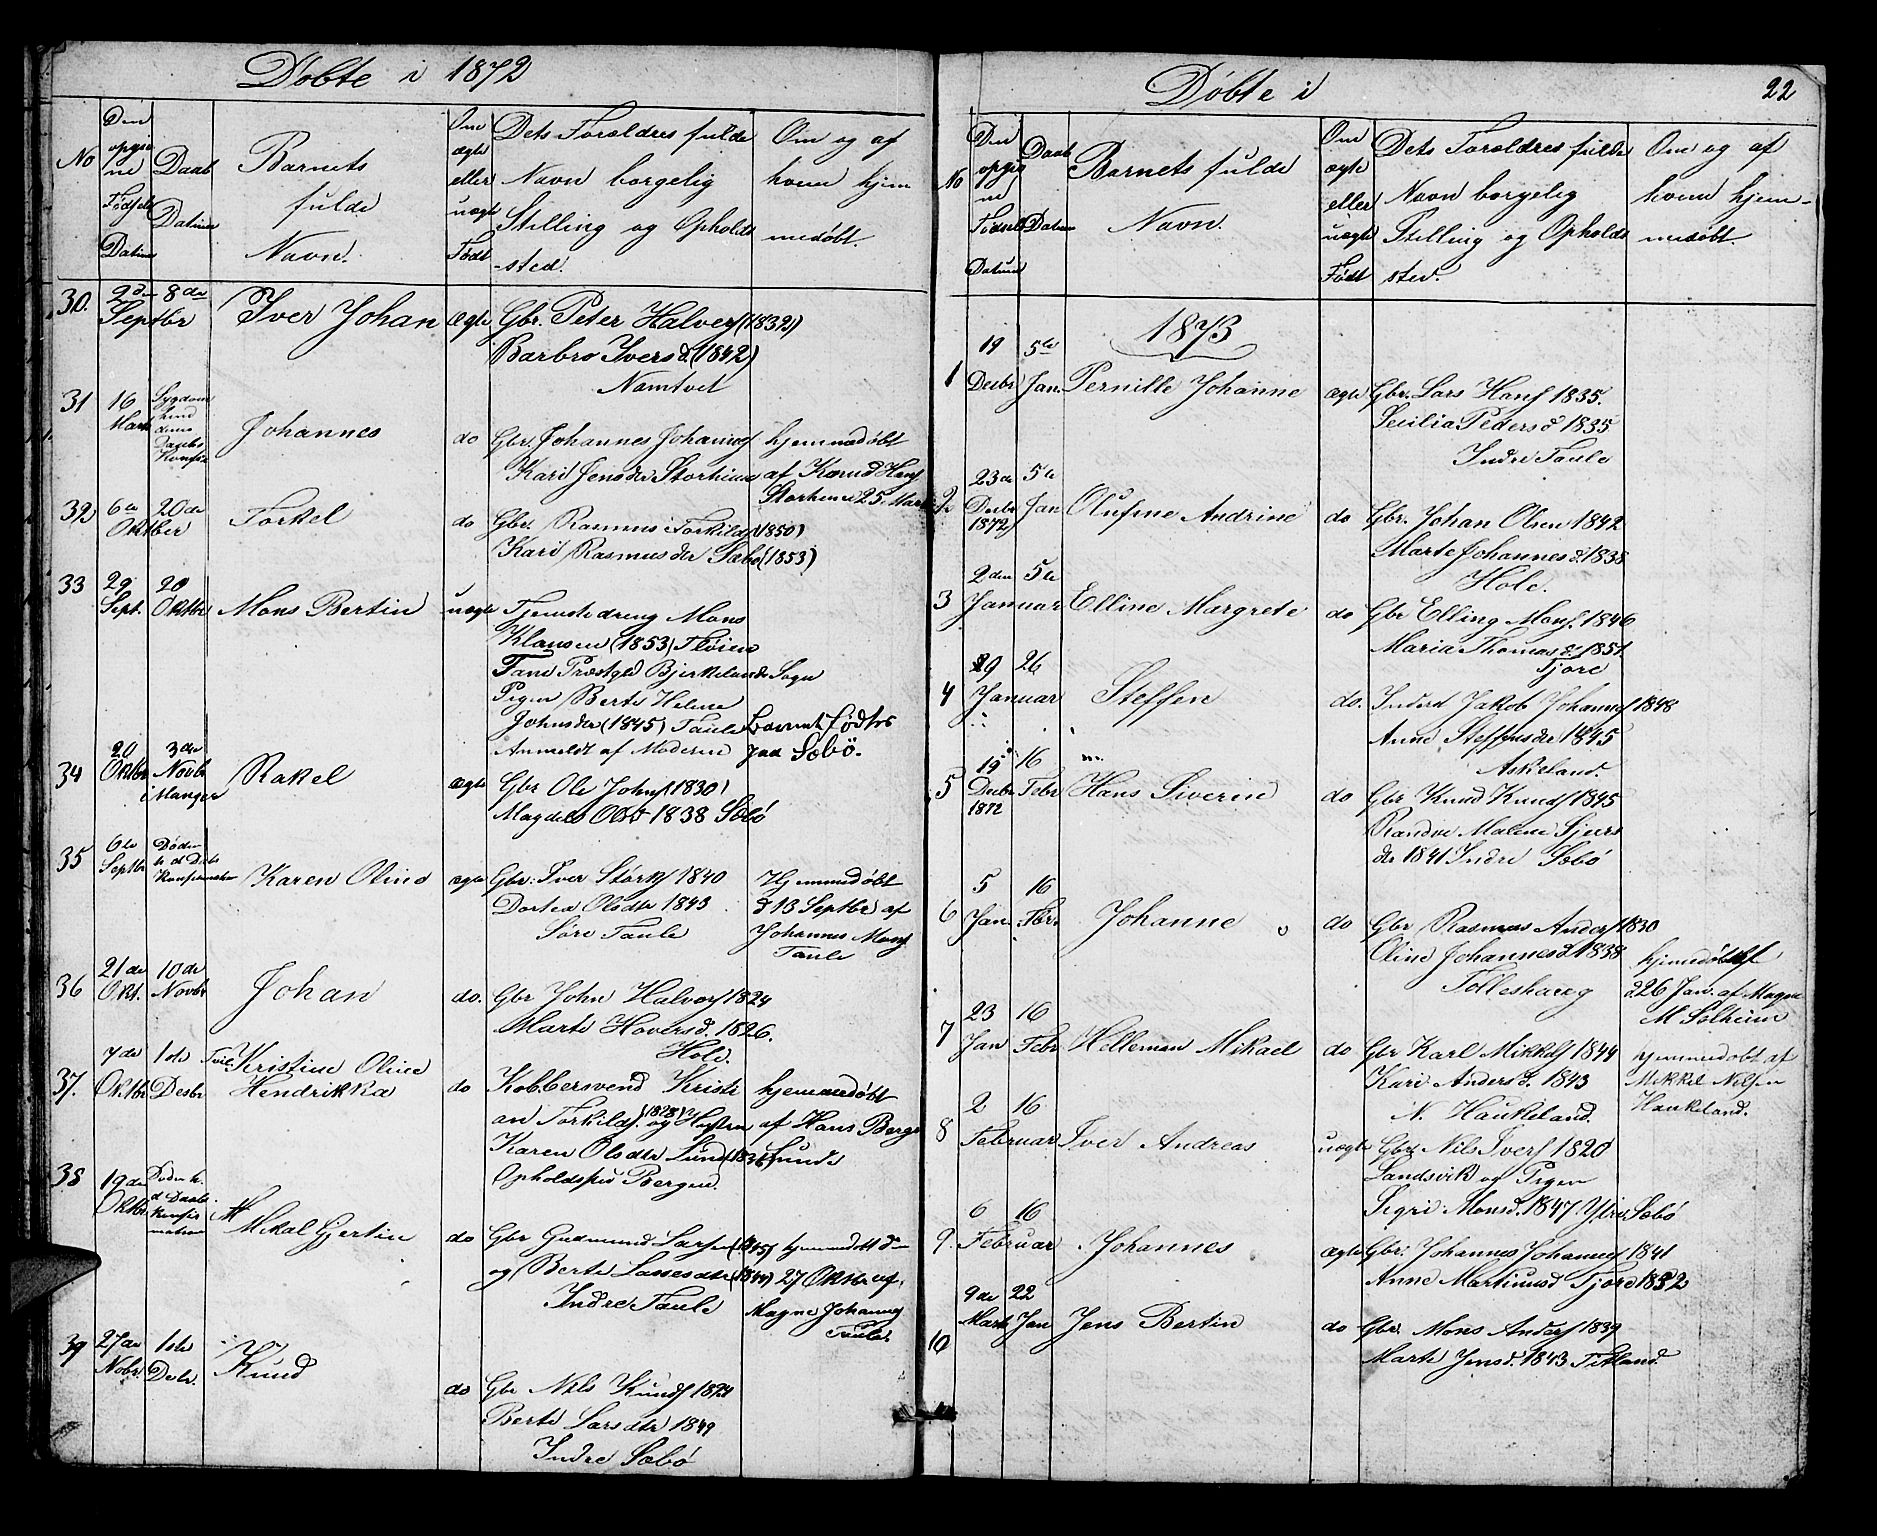 Döbte i 1872
No
Den opgivne Fødsels Datum
Daab Datum
Barnets fulde Navn.
Om ægte eller uægte Født
Dets Forældres fulde Navn borgelig Stilling og Opholdssted.
Om og af hvem hjemmedöbt.
30. 2den Septbr 8de Iver Johan ægte Gbr. Peter Halvers (1832)
Barbro Ivers d. (1842)
Namtvet
31 16 Marts Sygdom hindrer Daabs Johannes do Gbr. Johannes Johannes hjemmedøbt
Kari Jensdr Storheim af Knud Hans
Storheim 25. Marts
32 6te 20de Oktber Torkel do Gbr. Rasmus Torkilds (1850)
Kari Rasmusdr Sæbø (1853)
33 29 Sept. 20 Oktbr Mons Bertin uægte Tjenestedreng Mons
Klausen (1853) Fløien
Fane Præstgld Bjerkelands Sogn
Pigen Berte Helene
Johnsdr (1845) Taule Barnet födtes
Anmeldt af Moderen paa Sæbö.
34 20 Oktbr 3de Novbr i Manger Rakel ægte Gbr Ole Johns (1830)
Magdele Olsd 1838 Sæbö
35 6te Septbr Döden h d Dabs Konfirmation Karen Oline ægte Gbr: Iver Störks 1840 Hjemmedöbt
Dortea Olsdtr 1843 d 13 Septbr af
Söre Taule Johannes Mons
Taule
36 21de Okt. 10de Novbr Johan do. Gbr John Halvors 1824
Marte Haversd. 1826.
Hole
37. 7de Oktbr 1ste Desbr Tvil. Kristine Oline
Hendrikka do Kobbersvend Kristi hjemmedöbt
an Torkilds. (1828) og Hustru af Hans Berge
Karen Olsdtr Lund (1836) Lunde
Opholdsted Bergen.
38 19de Oktbr Döden h. d Daabs konfirmation Mikal Gjertin do Gbr Gudmund Larsen (1845) hjemmedöbt den
og Berte Lassesdtr (1844) 27 Oktbr af
Indre Taule Magne Johannes
Taule.
39 27de Nobr. 1ste Desbr. Knud
do Gbr Nils Knuds 1824
Berte Larsdtr 1849
Indre Sæbö
Döbte i 22
No
Den opgivne Födsels Datum
Daab Datum
Barnets fulde Navn.
Om ægte eller uægte Födt
Dets Forældres fulde Navn borgelig Stilling og Opholdssted.
Om og af hvem hjemmedöbt.
1873
1 19 Desbr 5te Jan. Pernille Johanne ægte Gbr. Lars Hans 1835.
Secilia Pedersd 1835
Indre Taule
2 23de Desbr 1872 5te Jan Olufine Andrine do Gbr. Johan Olsen 1842
Marte Johannesd. 1838
Hole.
3 2den 5te Januar Elline Margrete do Gbr Elling Mons. 1846
Maria Thomasd. 1851.
Fjöre
4 29 26 Januar Steffen do. Inderst Jakob Johannes 1848
Anne Steffensdr 1845
Askeland.
5 15 Desbr 1872 16 Febr Hans Siverin do Gbr Knud Knuds 1845
Randve Malene Sjurs
dr 1841 Indre Sæbö
6 5 Jan 16 Febr. Johanne do Gbr Rasmus Anders 1830
Oline Johannesd 1838 hjemedöbt
Tolleshaug d. 26 Jan. af Magne
M Solheim
7 23 Jan 16 Febr Helleman Mikael do Gbr Karl Mikkels 1844 hjemmedöbt af
Kari Andersd. 1843 Mikkel Nilsen
N. Haukeland. Haukeland.
8 2 16 Februar Iver Andreas uægte Gbr. Nils Ivers 1820
Landsvik og Pigen
Sigri Monsd. 1847 Ytre Sæbö
9. 6 16 Februar Johannes ægte Gbr: Johannes Johannes 1841
Anne Martinusd Fjöre 1832
10 9de Marts 22 Jan Jens Bertin do Gbr. Mons Anders 1839
Marte Jensd. 1843 Titland.